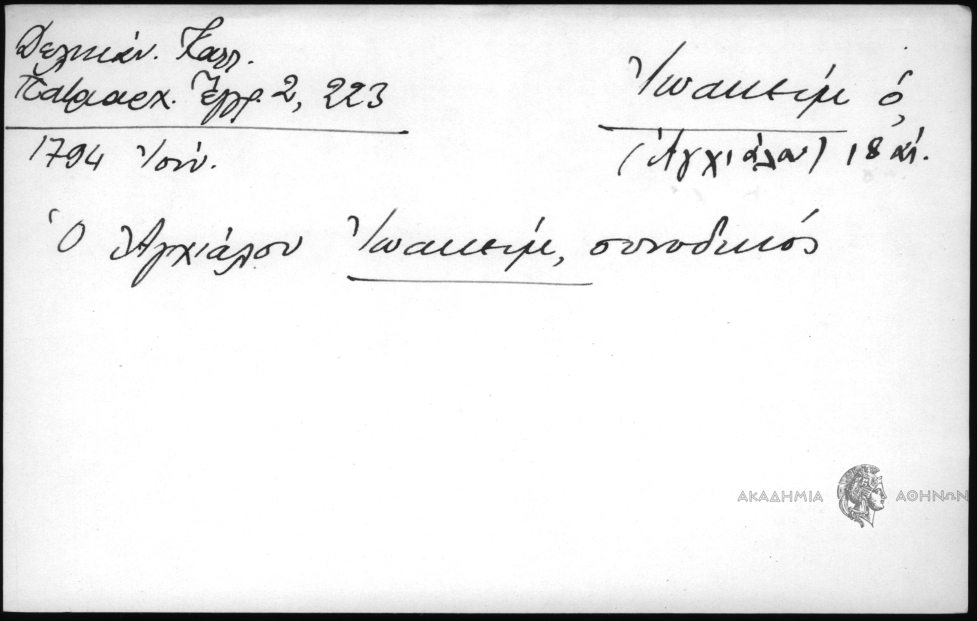 Δελικάν. Καλλ.
Πατριαρχ. Ἔγγρ. 2, 223
1794 Ἰούν.
Ἰωακεὶμ ὁ
(Ἀγχιάλου) 18 αἰ.
Ὁ Ἀγχιάλου Ἰωακεὶμ, συνοδικός
ΑΚΑΔΗΜΙΑ ΑΘΗΝΩΝ